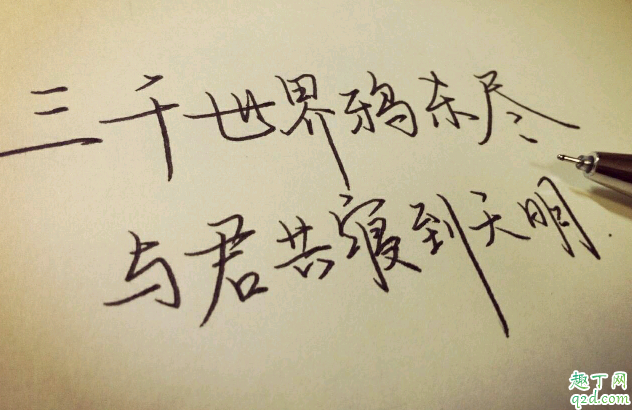 三千世界鸦东尽
与君共寝到天明.
趣丁网
q2d.com